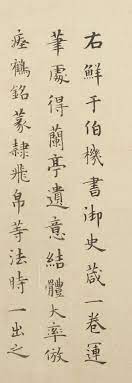 右鮮于伯機書御史箴一卷運
筆處得蘭亭遺意結體大率倣
瘞鶴銘篆隸飛帛等法時一出之